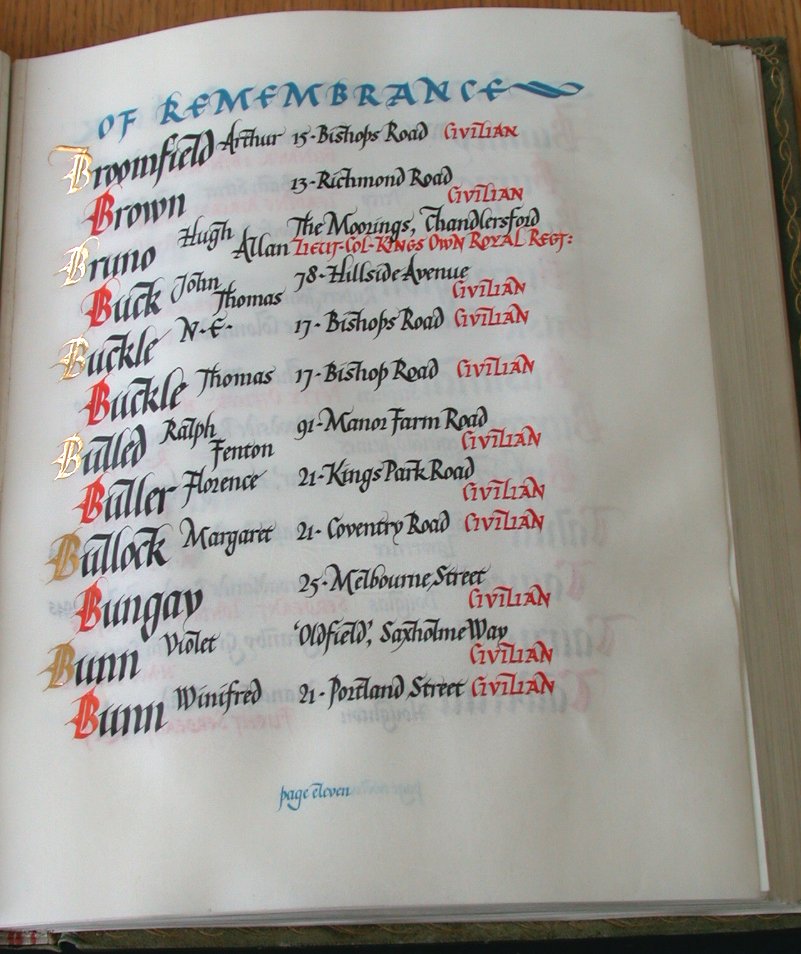 OF REMEMBRANCE
Broomfield Arthur 15·Bishops Road CIVILIAN
Brown 13·Richmond Road
CIVILIAN
Bruno Hugh The Moorings, Chandlersford
Allan LIEUT·COL·KINGS OWN ROYAL REGT:
Buck John 78·Hillside Avenue
Thomas CIVILIAN
Buckle N·E· 17·Bishops Road CIVILIAN
Buckle Thomas 17·Bishop Road CIVILIAN
Bulled Ralph 91·Manor Farm Road
Fenton CIVILIAN
Buller Florence 21·Kings Park Road
CIVILIAN
Bullock Margaret 21·Coventry Road CIVILIAN
Bungay 25·Melbourne Street
CIVILIAN
Bunn Violet 'Oldfield', Saxholme Way
CIVILIAN
Bunn Winifred 21·Portland Street CIVILIAN
page eleven